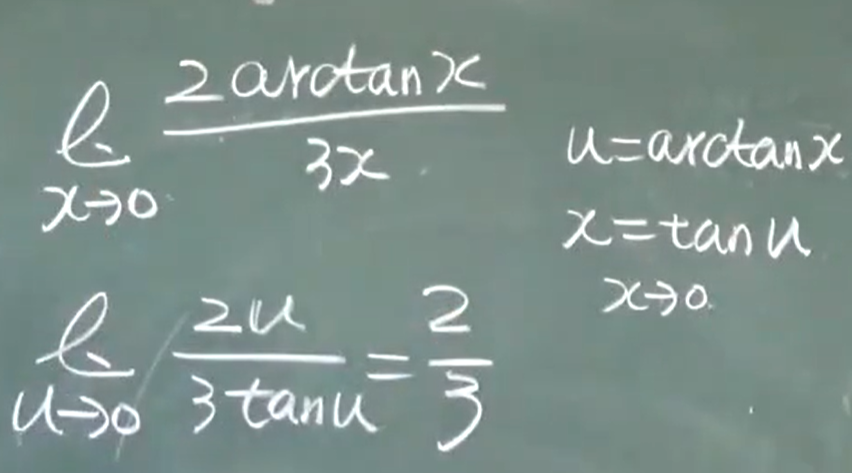 l 2arctanx / 3x
x→0
u=arctanx
x=tanu
x→0
l 2u / 3tanu = 2 / 3
u→0